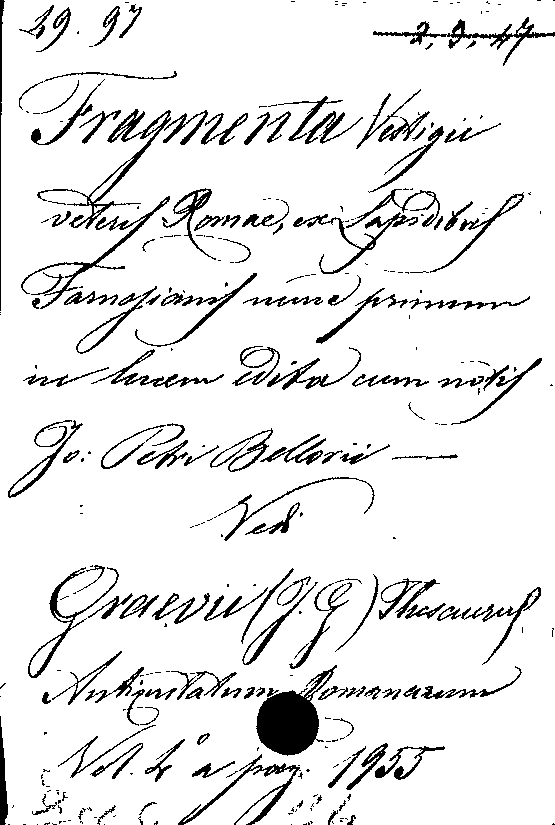 39. 97
2. 3. 47
Fragmenta Vestigii
veteris Romae, ex Lapidibus
Farnesianis nunc primum
in lucem edita cum notis
Jo: Petri Bellorii —
Vedi
Graevii (J. G) Thesaurus
Antiquitatum Romanarum
Vol. 4° a pag. 1955